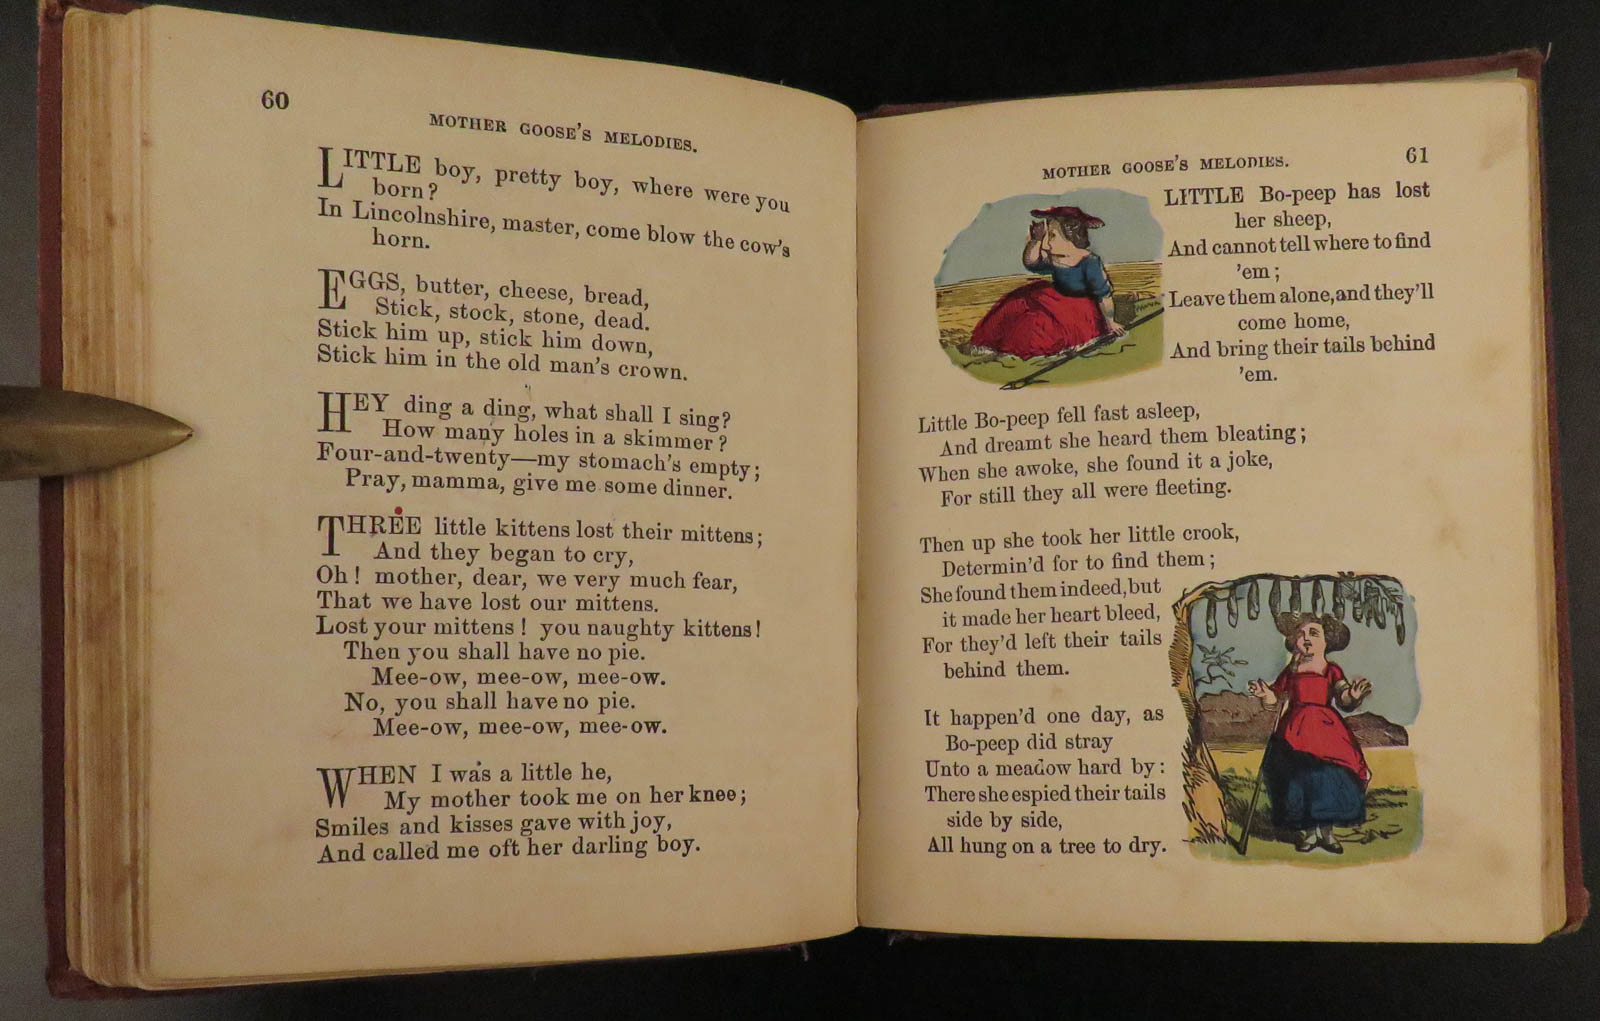 60
MOTHER GOOSE'S MELODIES.
LITTLE boy, pretty boy, where were you
born?
In Lincolnshire, master, come blow the cow's
horn.
EGGS, butter, cheese, bread,
Stick, stock, stone, dead.
Stick him up, stick him down,
Stick him in the old man's crown.
HEY ding a ding, what shall I sing?
How many holes in a skimmer?
Four-and-twenty—my stomach's empty;
Pray, mamma, give me some dinner.
THREE little kittens lost their mittens;
And they began to cry,
Oh! mother, dear, we very much fear,
That we have lost our mittens.
Lost your mittens! you naughty kittens!
Then you shall have no pie.
Mee-ow, mee-ow, mee-ow.
No, you shall have no pie.
Mee-ow, mee-ow, mee-ow.
WHEN I was a little he,
My mother took me on her knee;
Smiles and kisses gave with joy,
And called me oft her darling boy.
MOTHER GOOSE'S MELODIES.
61
LITTLE Bo-peep has lost
her sheep,
And cannot tell where to find
'em;
Leave them alone, and they'll
come home,
And bring their tails behind
'em.
Little Bo-peep fell fast asleep,
And dreamt she heard them bleating;
When she awoke, she found it a joke,
For still they all were fleeting.
Then up she took her little crook,
Determin'd for to find them;
She found them indeed, but
it made her heart bleed,
For they'd left their tails
behind them.
It happen'd one day, as
Bo-peep did stray
Unto a meadow hard by:
There she espied their tails
side by side,
All hung on a tree to dry.